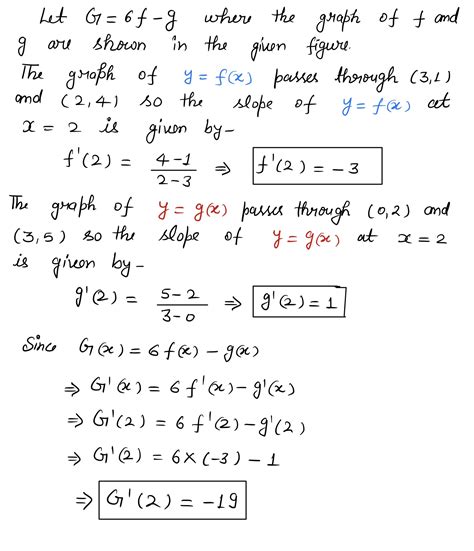 Let G = 6f - g where the graph of f and
g are shown in the given figure.
The graph of y = f(x) passes through (3,1)
and (2,4) so the slope of y = f(x) at
x = 2 is given by-
f'(2) = (4-1)/(2-3) ⇒ f'(2) = -3
The graph of y = g(x) passes through (0,2) and
(3,5) so the slope of y = g(x) at x = 2
is given by-
g'(2) = (5-2)/(3-0) ⇒ g'(2) = 1
Since G(x) = 6 f(x) - g(x)
⇒ G'(x) = 6 f'(x) - g'(x)
⇒ G'(2) = 6 f'(2) - g'(2)
⇒ G'(2) = 6×(-3) - 1
⇒ G'(2) = -19